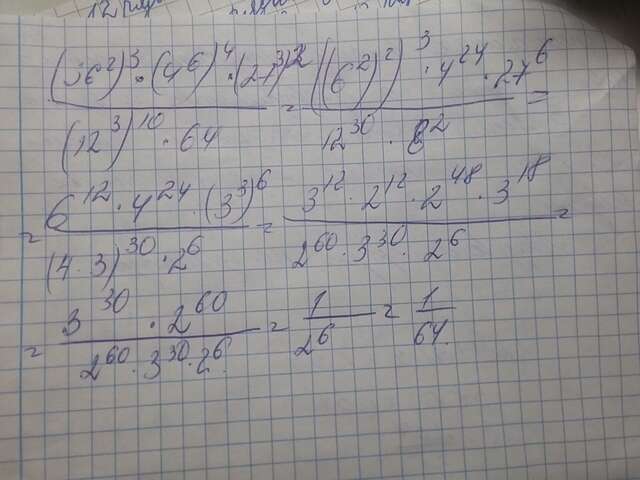 (36²)³·(4⁶)⁴·(27³)² / (12³)¹⁰·64 = ((6²)²)³·4²⁴·27⁶ / 12³⁰·8² =
= 6¹²·4²⁴·(3³)⁶ / (4·3)³⁰·2⁶ = 3¹²·2¹²·2⁴⁸·3¹⁸ / 2⁶⁰·3³⁰·2⁶ =
= 3³⁰·2⁶⁰ / 2⁶⁰·3³⁰·2⁶ = 1 / 2⁶ = 1 / 64.